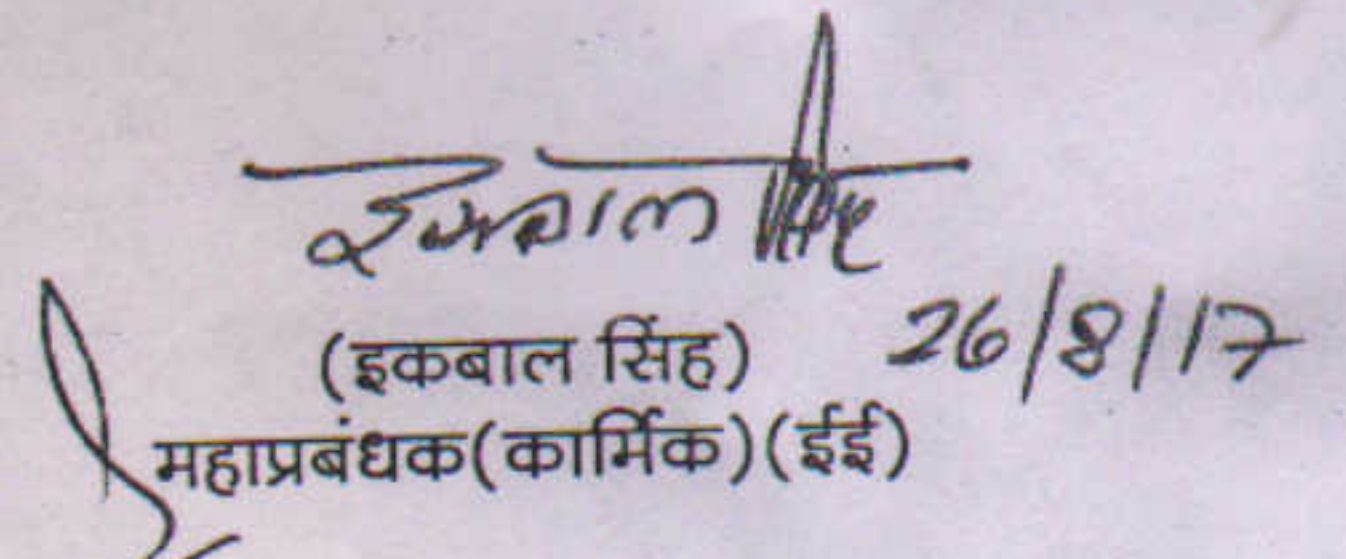 इकबाल सिंह
(इकबाल सिंह) 26/8/17
महाप्रबंधक(कार्मिक)(ईई)